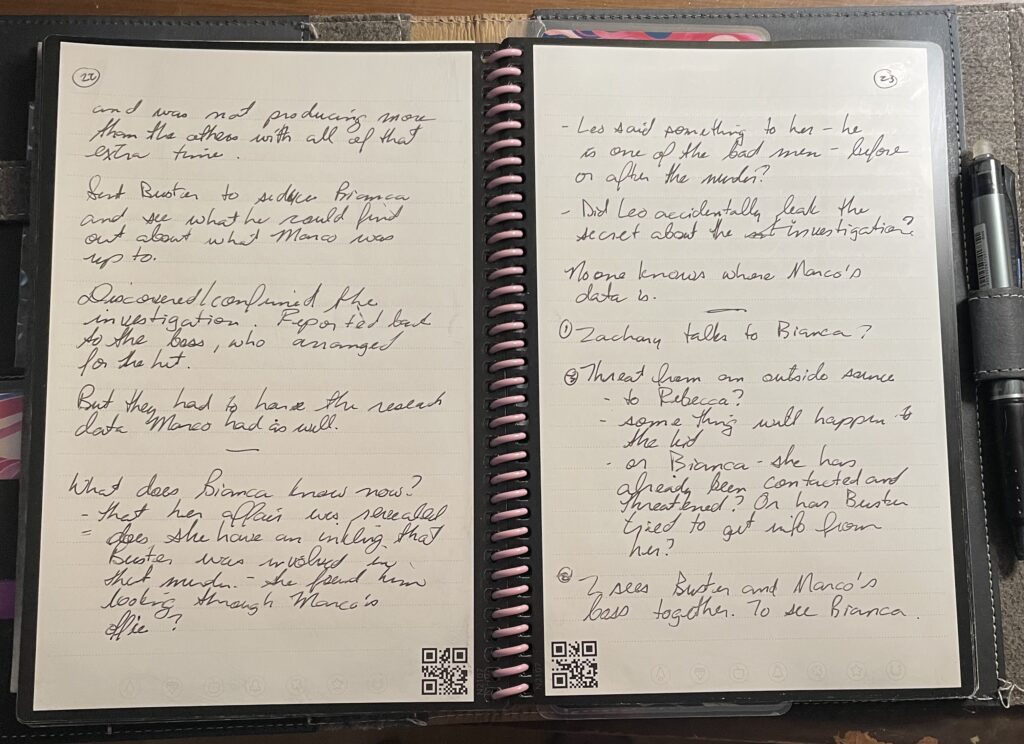 22
and was not producing more
than the others with all of that
extra time.
Sent Buster to seduce Bianca
and see what he could find
out about what Marco was
up to.
Discovered/confirmed the
investigation. Reported back
to the boss, who arranged
for the hit.
But they had to have the research
data Marco had as well.
What does Bianca know now?
- that her affair was revealed
- does she have an inkling that
Buster was involved in
that murder. - she found him
looking through Marco's
offic?
23
- Les said something to her - he
is one of the bad men - before
or after the murder?
- Did Leo accidentally leak the
secret about the investigation?
No one knows where Marco's
data is.
① Zachary talks to Bianca?
③ Threat from an outside source
- to Rebecca?
- some thing will happen to
the kid
- or Bianca - she has
already been contacted and
threatened? Or has Buster
tried to get info from
her?
② Z sees Buster and Marco's
boss together. To see Bianca.